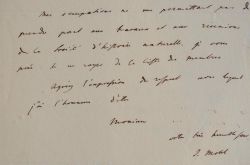 mes occupations ne me permettant pas de
prendre part aux travaux et aux réunions
de la Société d'histoire naturelle, je vous
prie de me rayer de la liste des membres
Agréez l'expression du respect avec lequel
j'ai l'honneur d'être
Monsieur
votre très humble
J. Mohl